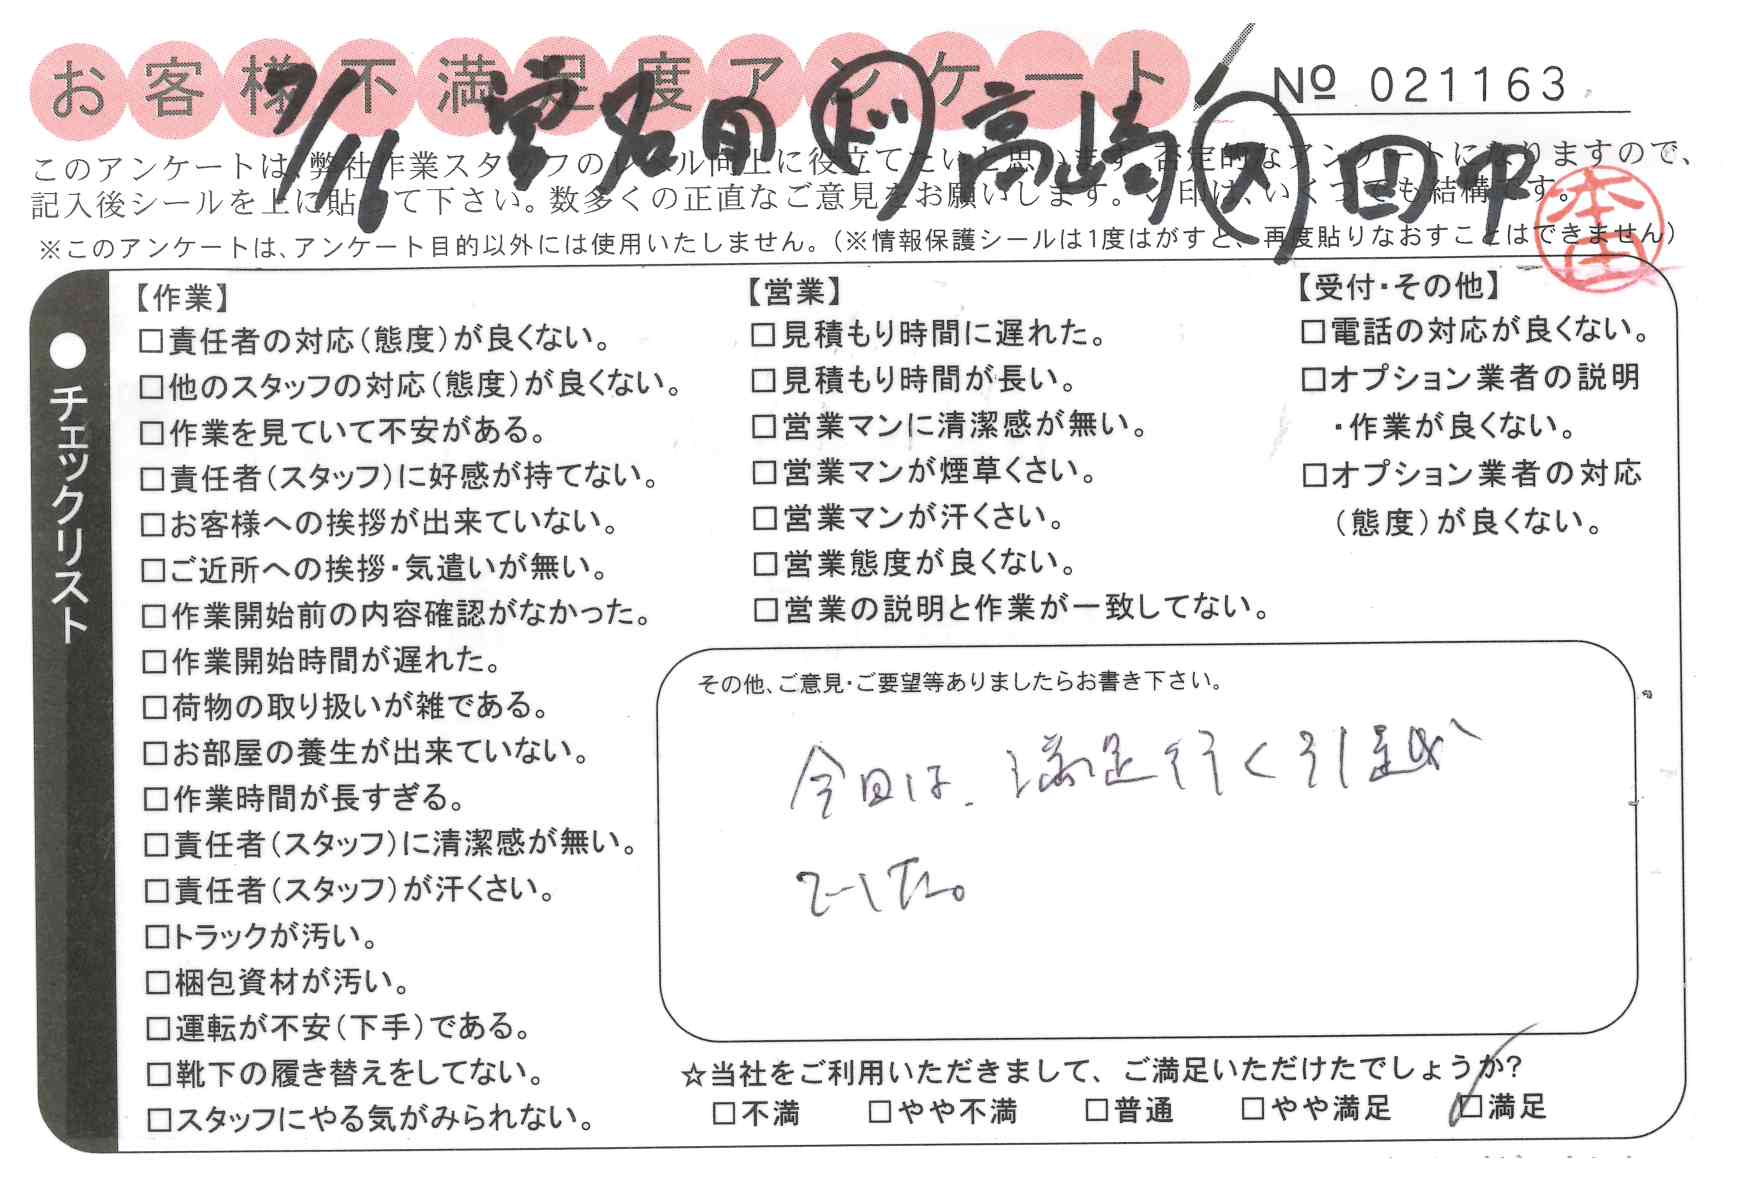 お客様不満足度アンケート
№ 021163
7/16 宮名 ド 高崎 メ 田中
このアンケートは、弊社作業スタッフのレベル向上に役立てたいと思います。否定的なアンケートになりますので、
記入後シールを上に貼って下さい。数多くの正直なご意見をお願いします。✓印は、いくつでも結構です。
※このアンケートは、アンケート目的以外には使用いたしません。(※情報保護シールは1度はがすと、再度貼りなおすことはできません)
本田
●チェックリスト
【作業】
□責任者の対応(態度)が良くない。
□他のスタッフの対応(態度)が良くない。
□作業を見ていて不安がある。
□責任者(スタッフ)に好感が持てない。
□お客様への挨拶が出来ていない。
□ご近所への挨拶・気遣いが無い。
□作業開始前の内容確認がなかった。
□作業開始時間が遅れた。
□荷物の取り扱いが雑である。
□お部屋の養生が出来ていない。
□作業時間が長すぎる。
□責任者(スタッフ)に清潔感が無い。
□責任者(スタッフ)が汗くさい。
□トラックが汚い。
□梱包資材が汚い。
□運転が不安(下手)である。
□靴下の履き替えをしてない。
□スタッフにやる気がみられない。
【営業】
□見積もり時間に遅れた。
□見積もり時間が長い。
□営業マンに清潔感が無い。
□営業マンが煙草くさい。
□営業マンが汗くさい。
□営業態度が良くない。
□営業の説明と作業が一致してない。
【受付・その他】
□電話の対応が良くない。
□オプション業者の説明
・作業が良くない。
□オプション業者の対応
(態度)が良くない。
その他、ご意見・ご要望等ありましたらお書き下さい。
今回は、満足行く引越が
でした。
☆当社をご利用いただきまして、ご満足いただけたでしょうか?
□不満 □やや不満 □普通 □やや満足 ☑満足